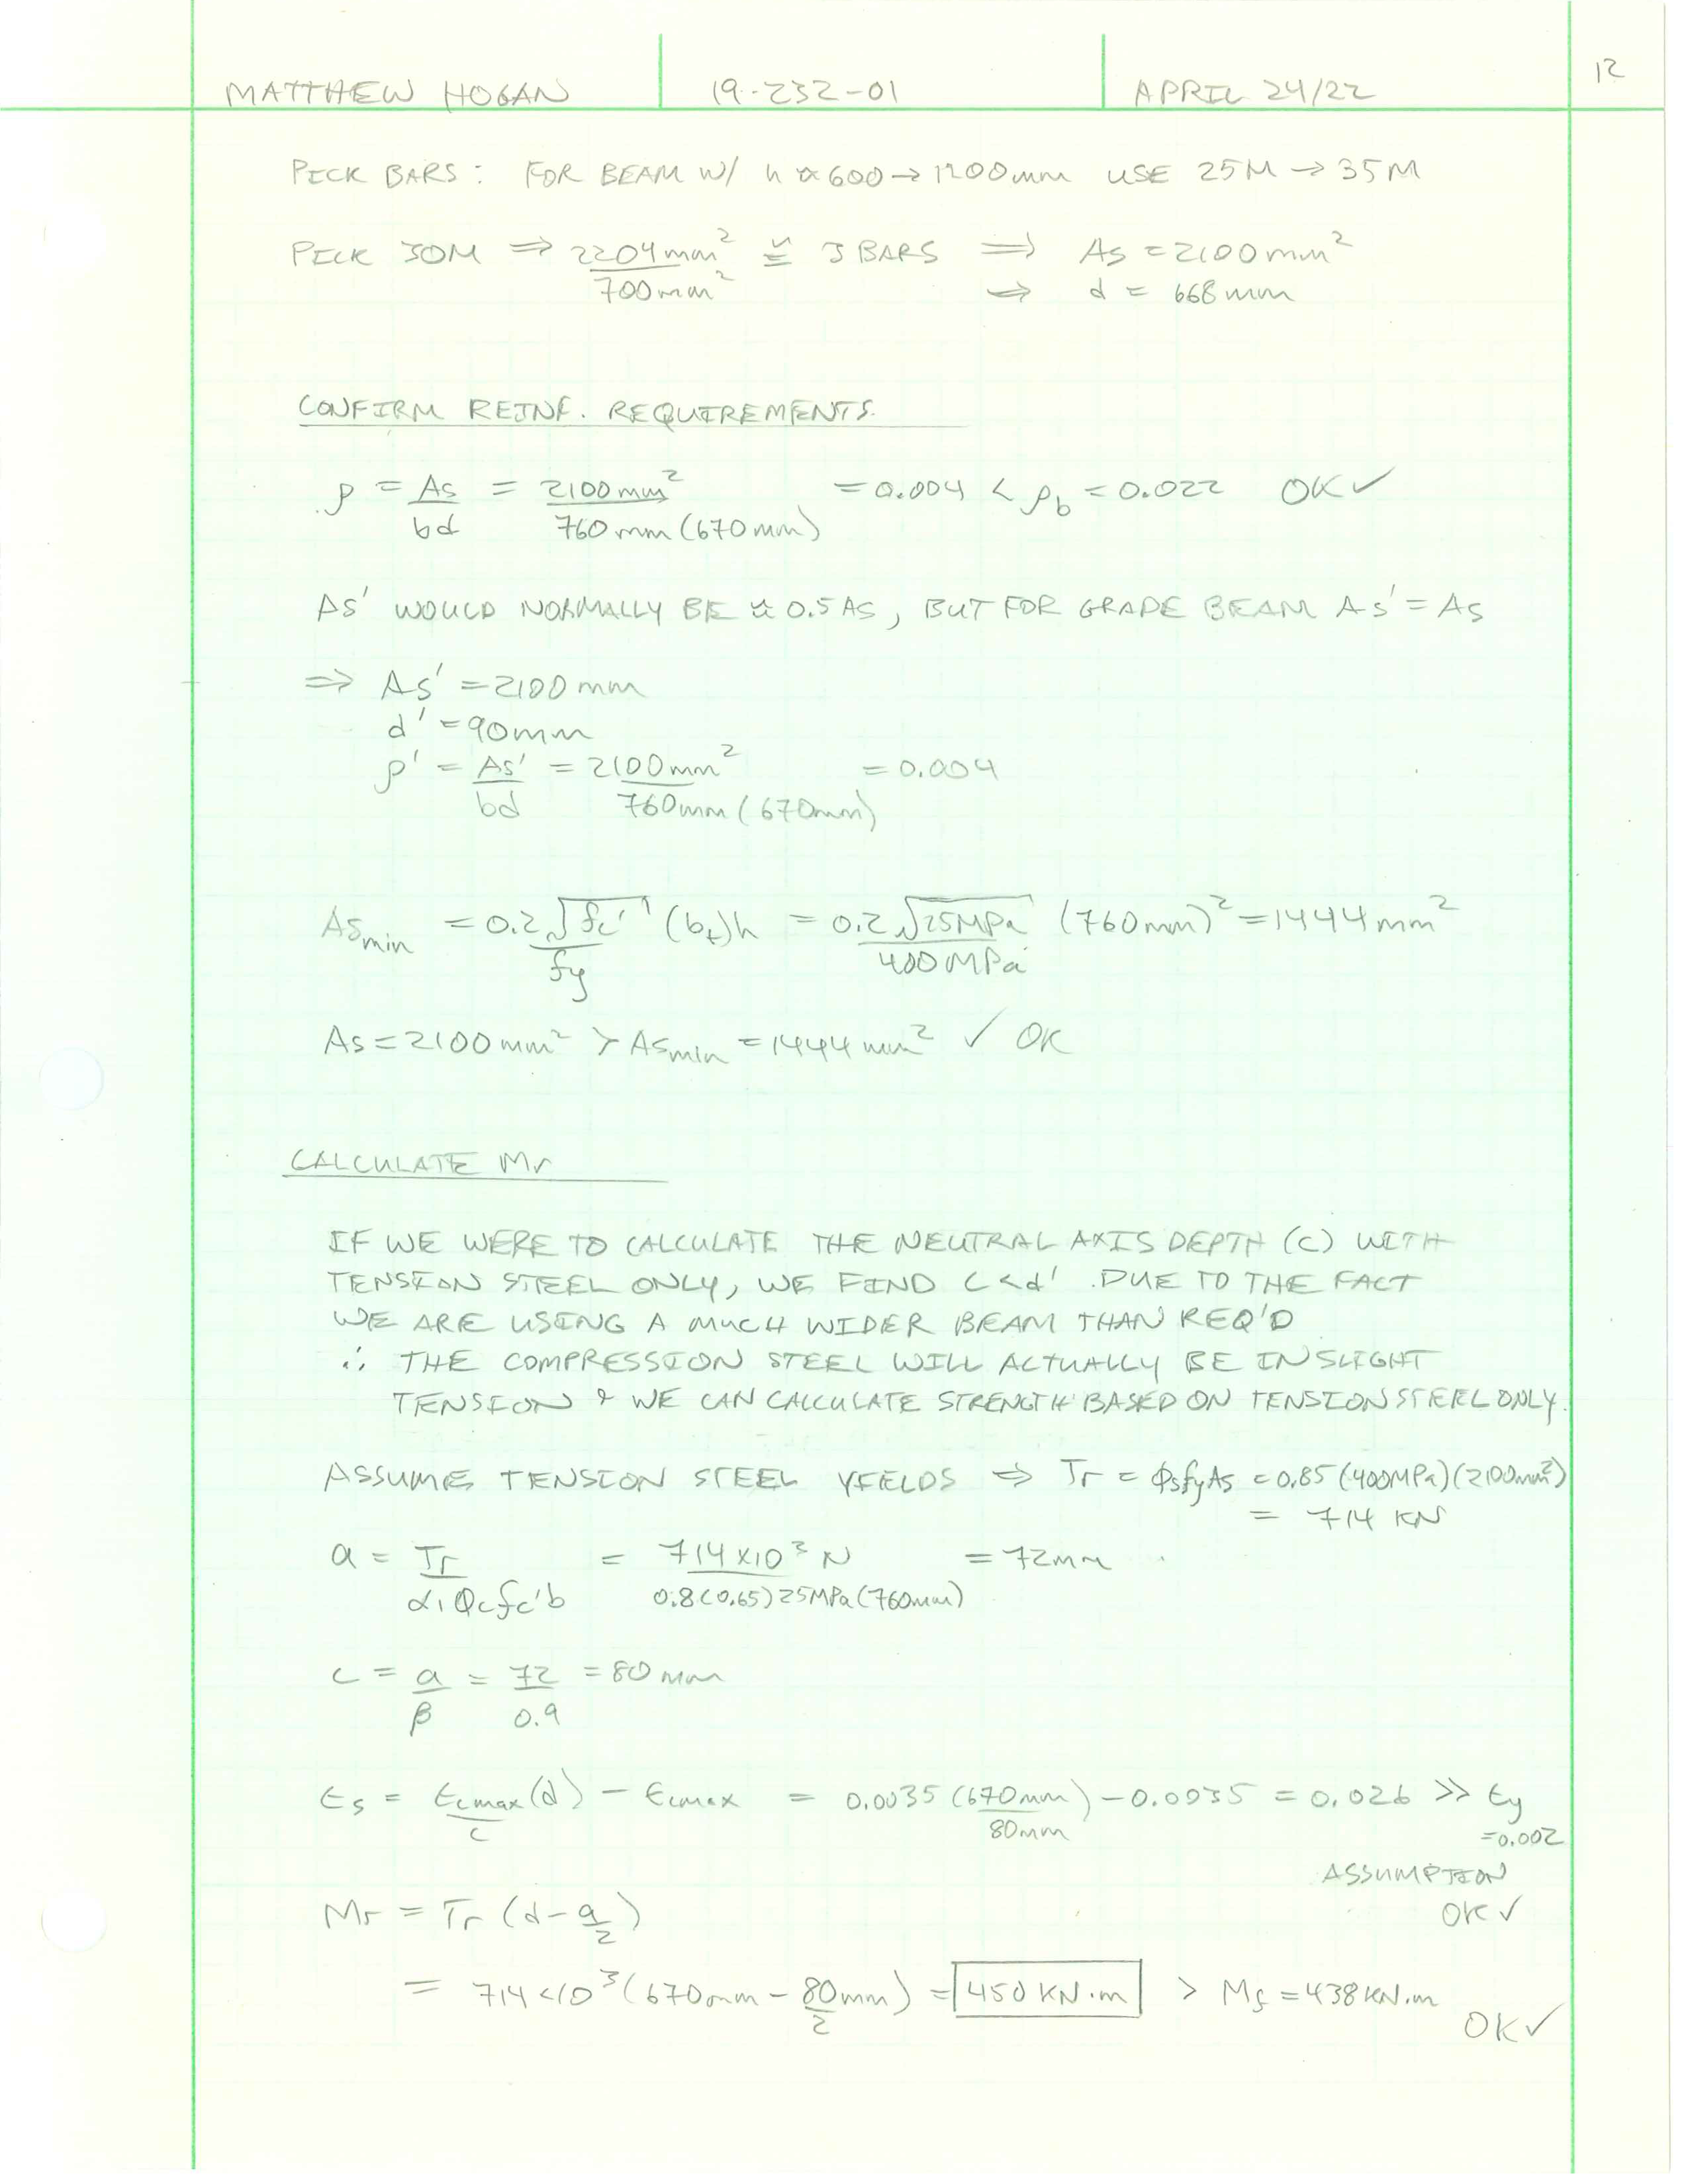 MATTHEW HOGAN 19-232-01 APRIL 24/22 12
PICK BARS: FOR BEAM W/ h ≈ 600 → 1200mm USE 25M → 35M
PICK 30M ⇒ 2204mm² / 700mm² ≅ 3 BARS ⇒ As = 2100mm²
⇒ d = 668mm
CONFIRM REINF. REQUIREMENTS.
ρ = As / bd = 2100mm² / 760mm(670mm) = 0.004 < ρb = 0.022 OK ✓
As' WOULD NORMALLY BE ≈ 0.5 AS, BUT FOR GRADE BEAM As' = AS
⇒ As' = 2100mm
d' = 90mm
ρ' = As' / bd = 2100mm² / 760mm(670mm) = 0.004
Asmin = 0.2√fc' / fy (bt)h = 0.2√25MPa / 400MPa (760mm)² = 1444mm²
As = 2100mm² > Asmin = 1444mm² ✓ OK
CALCULATE Mr
IF WE WERE TO CALCULATE THE NEUTRAL AXIS DEPTH (C) WITH
TENSION STEEL ONLY, WE FIND C < d'. DUE TO THE FACT
WE ARE USING A MUCH WIDER BEAM THAN REQ'D
∴ THE COMPRESSION STEEL WILL ACTUALLY BE IN SLIGHT
TENSION & WE CAN CALCULATE STRENGTH BASED ON TENSION STEEL ONLY.
ASSUME TENSION STEEL YIELDS ⇒ Tr = ϕsfyAs = 0.85(400MPa)(2100mm²)
= 714 KN
a = Tr / α1ϕcfc'b = 714×10³N / 0.8(0.65)25MPa(760mm) = 72mm
c = a / β = 72 / 0.9 = 80mm
Es = Ecmax(d) / c − Ecmax = 0.0035(670mm) / 80mm − 0.0035 = 0.026 >> Ey
=0.002
ASSUMPTION
OK ✓
Mr = Tr (d − a/2)
= 714×10³(670mm − 80mm/2) = 450 KN·m > Mf = 438KN.m
OK ✓